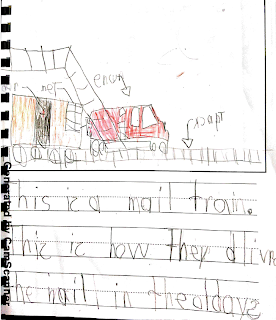 This is a mail train.
This is how they dlive
the mail in the oldays
Generated by CamScanner